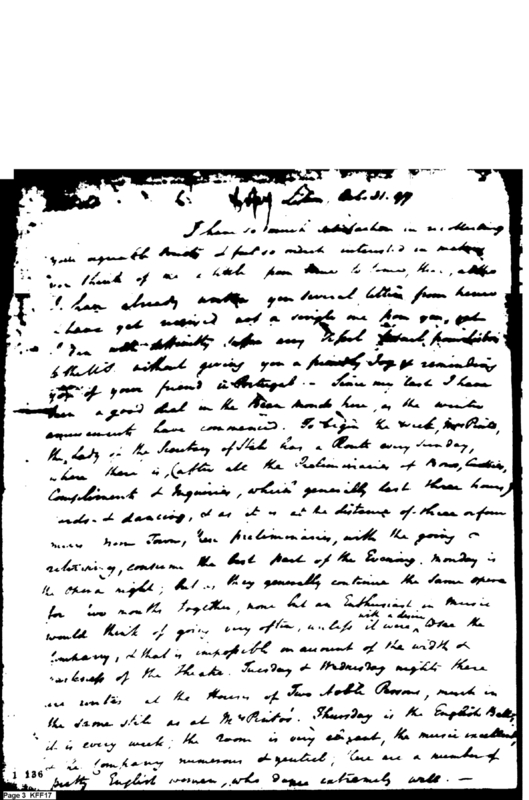 Lisbon. Oct. 31. 97
I have so much satisfaction in recollecting
your agreeable & feel so much interested in making
you think of me a little from time to time, that, altho
I have already written you several letters from hence
& have yet received not a single one from you, yet
I can with difficulty suffer any
to the US without giving you a friendly Jog & reminding
you of your friend in Portugal. - Since my last I have
been a good deal in the Beau Monde here, as the winter
amusements have commenced. To begin the week, Mrs Pinto,
the Lady of the Secretary of State has a Route every Sunday,
where there is, (after all the Preliminaries of Bows, Curtsies,
Compliments & Inquiries, which generally last three hours,)
Cards & dancing, & as it is at the distance of three or four
miles from Town, these preliminaries, with the going &
returning, consume the best part of the Evening. Monday is
the Opera night; but as they generally continue the same opera
for two months together, none but an Enthusiast in Music
would think of going very often, unless it were with a desire to see the
Company, & that is impossible on account of the width &
darkness of the Theatre. Tuesday & Wednesday nights there
are routes at the Houses of Two Noble Persons, much in
the same stile as at Mrs Pinto's. Thursday is the English Ball;
it is every week; the room is very elegant, the music excellent,
& the Company numerous & genteel; there are a number of
pretty English women, who dance extremely well. -
1 136
Page 3 KFF17